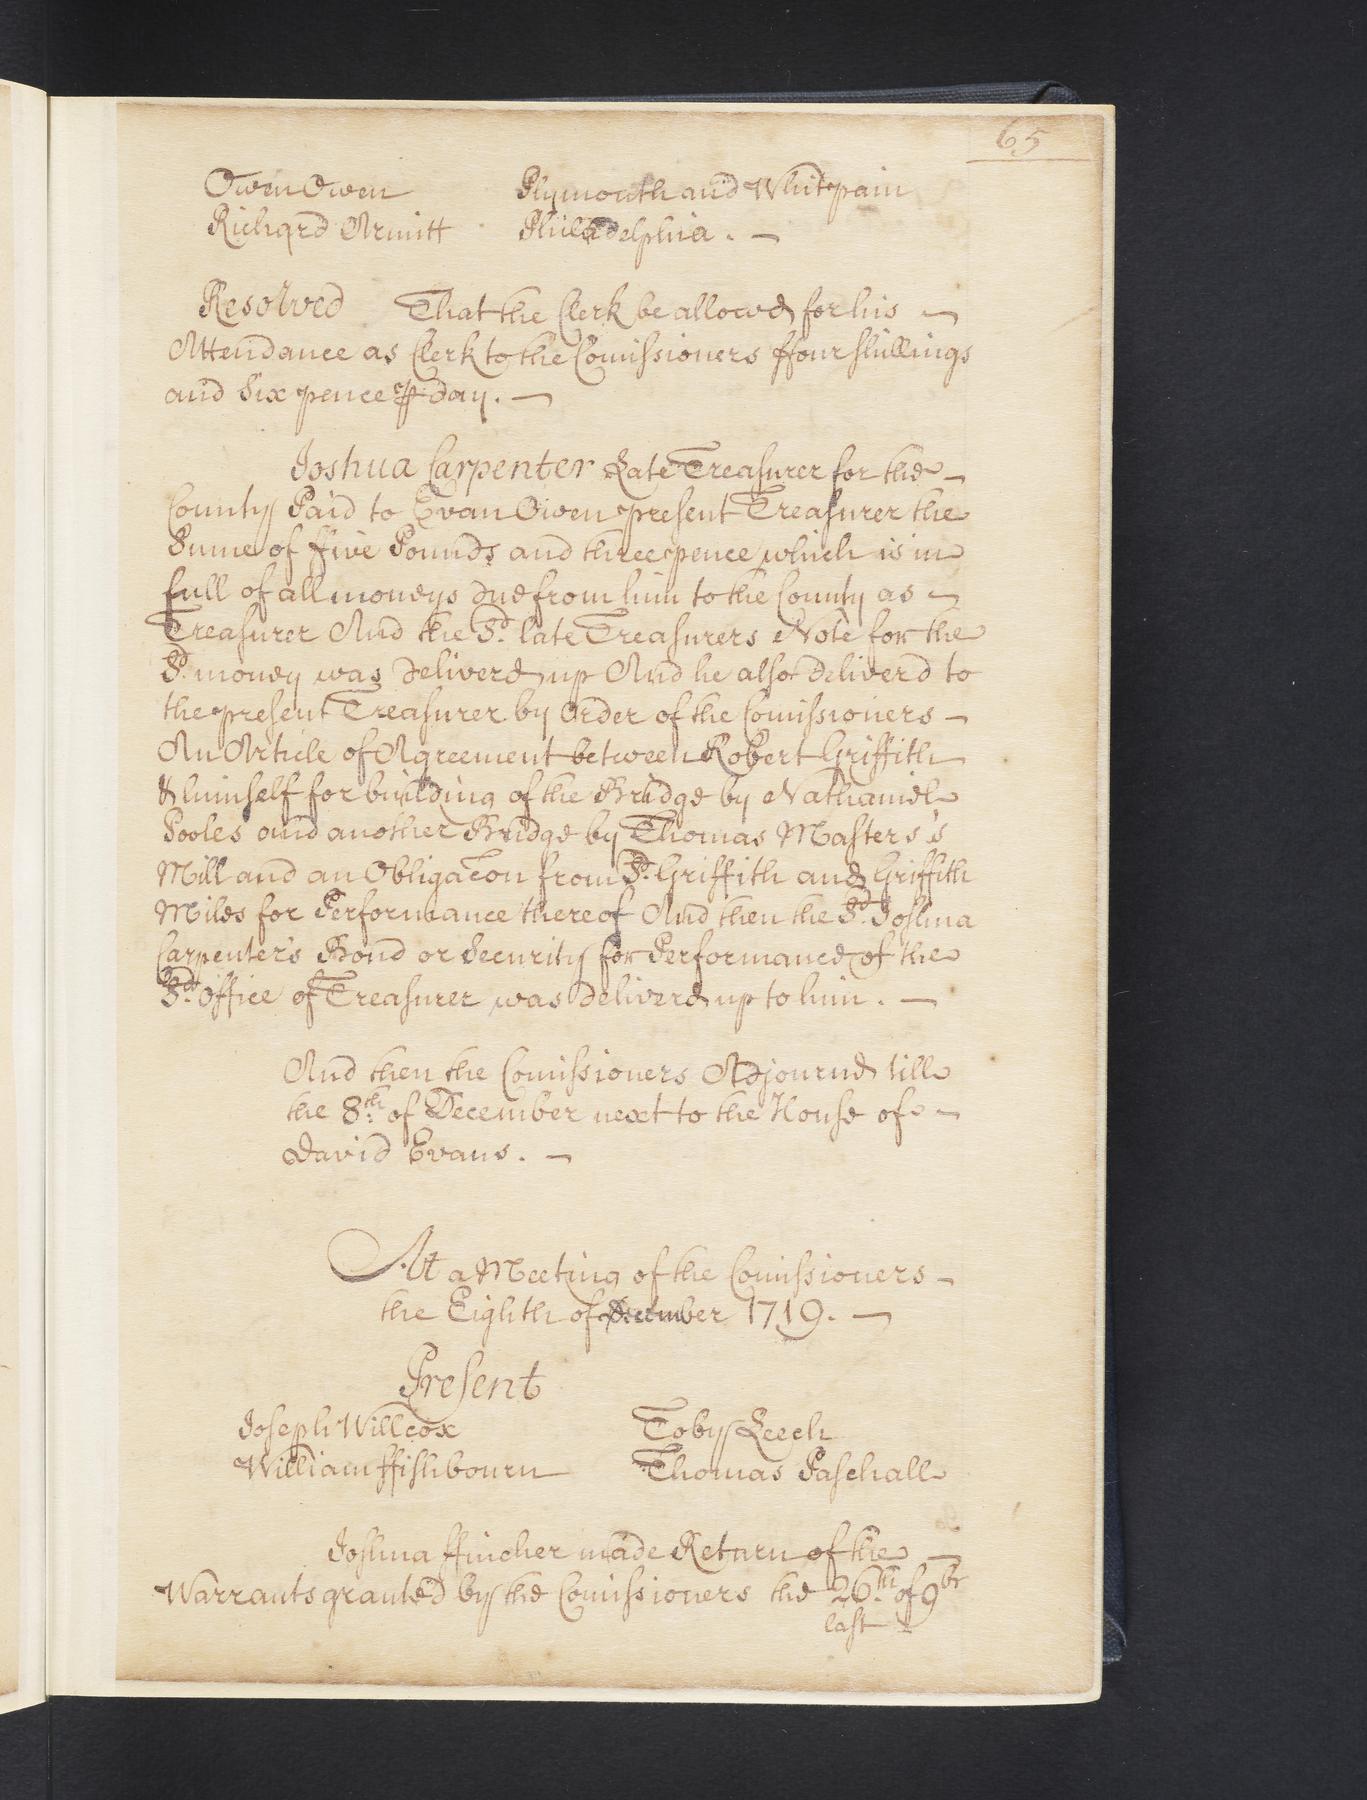 65
Owen Owen Plymouth and Whitpain
Richard Armitt Philadelphia. —
Resolved That the Clerk be allowd for his —
Attendance as Clerk to the Comissioners ffour shillings
and Six pence ⅌ day. —
Joshua Carpenter Late Treasurer for the —
County Paid to Evan Owen present Treasurer the
Sume of ffive Pounds and three pence which is in
full of all moneys due from him to the County as —
Treasurer And the Sd. late Treasurers Note for the
Sd. money was deliverd up And he also deliverd to
the present Treasurer by Order of the Comissioners —
An Article of Agreement between Robert Griffith
& himself for building of the Bridge by Nathaniel
Pooles and another Bridge by Thomas Masters's
Mill and an Obligacon from Sd. Griffith and Griffith
Miles for Performance thereof And then the Sd. Joshua
Carpenter's Bond or Security for Performance of the
Sd. office of Treasurer was deliverd up to him. —
And then the Comissioners Adjournd till
the 8th. of December next to the House of —
David Evans. —
At a Meeting of the Comissioners —
the Eighth of December 1719. —
Present
Joseph Willcox Toby Leech
William ffishbourn Thomas Paschall
Joshua ffincher made Return of the —
Warrants granted by the Comissioners the 26th. of 9br
last —